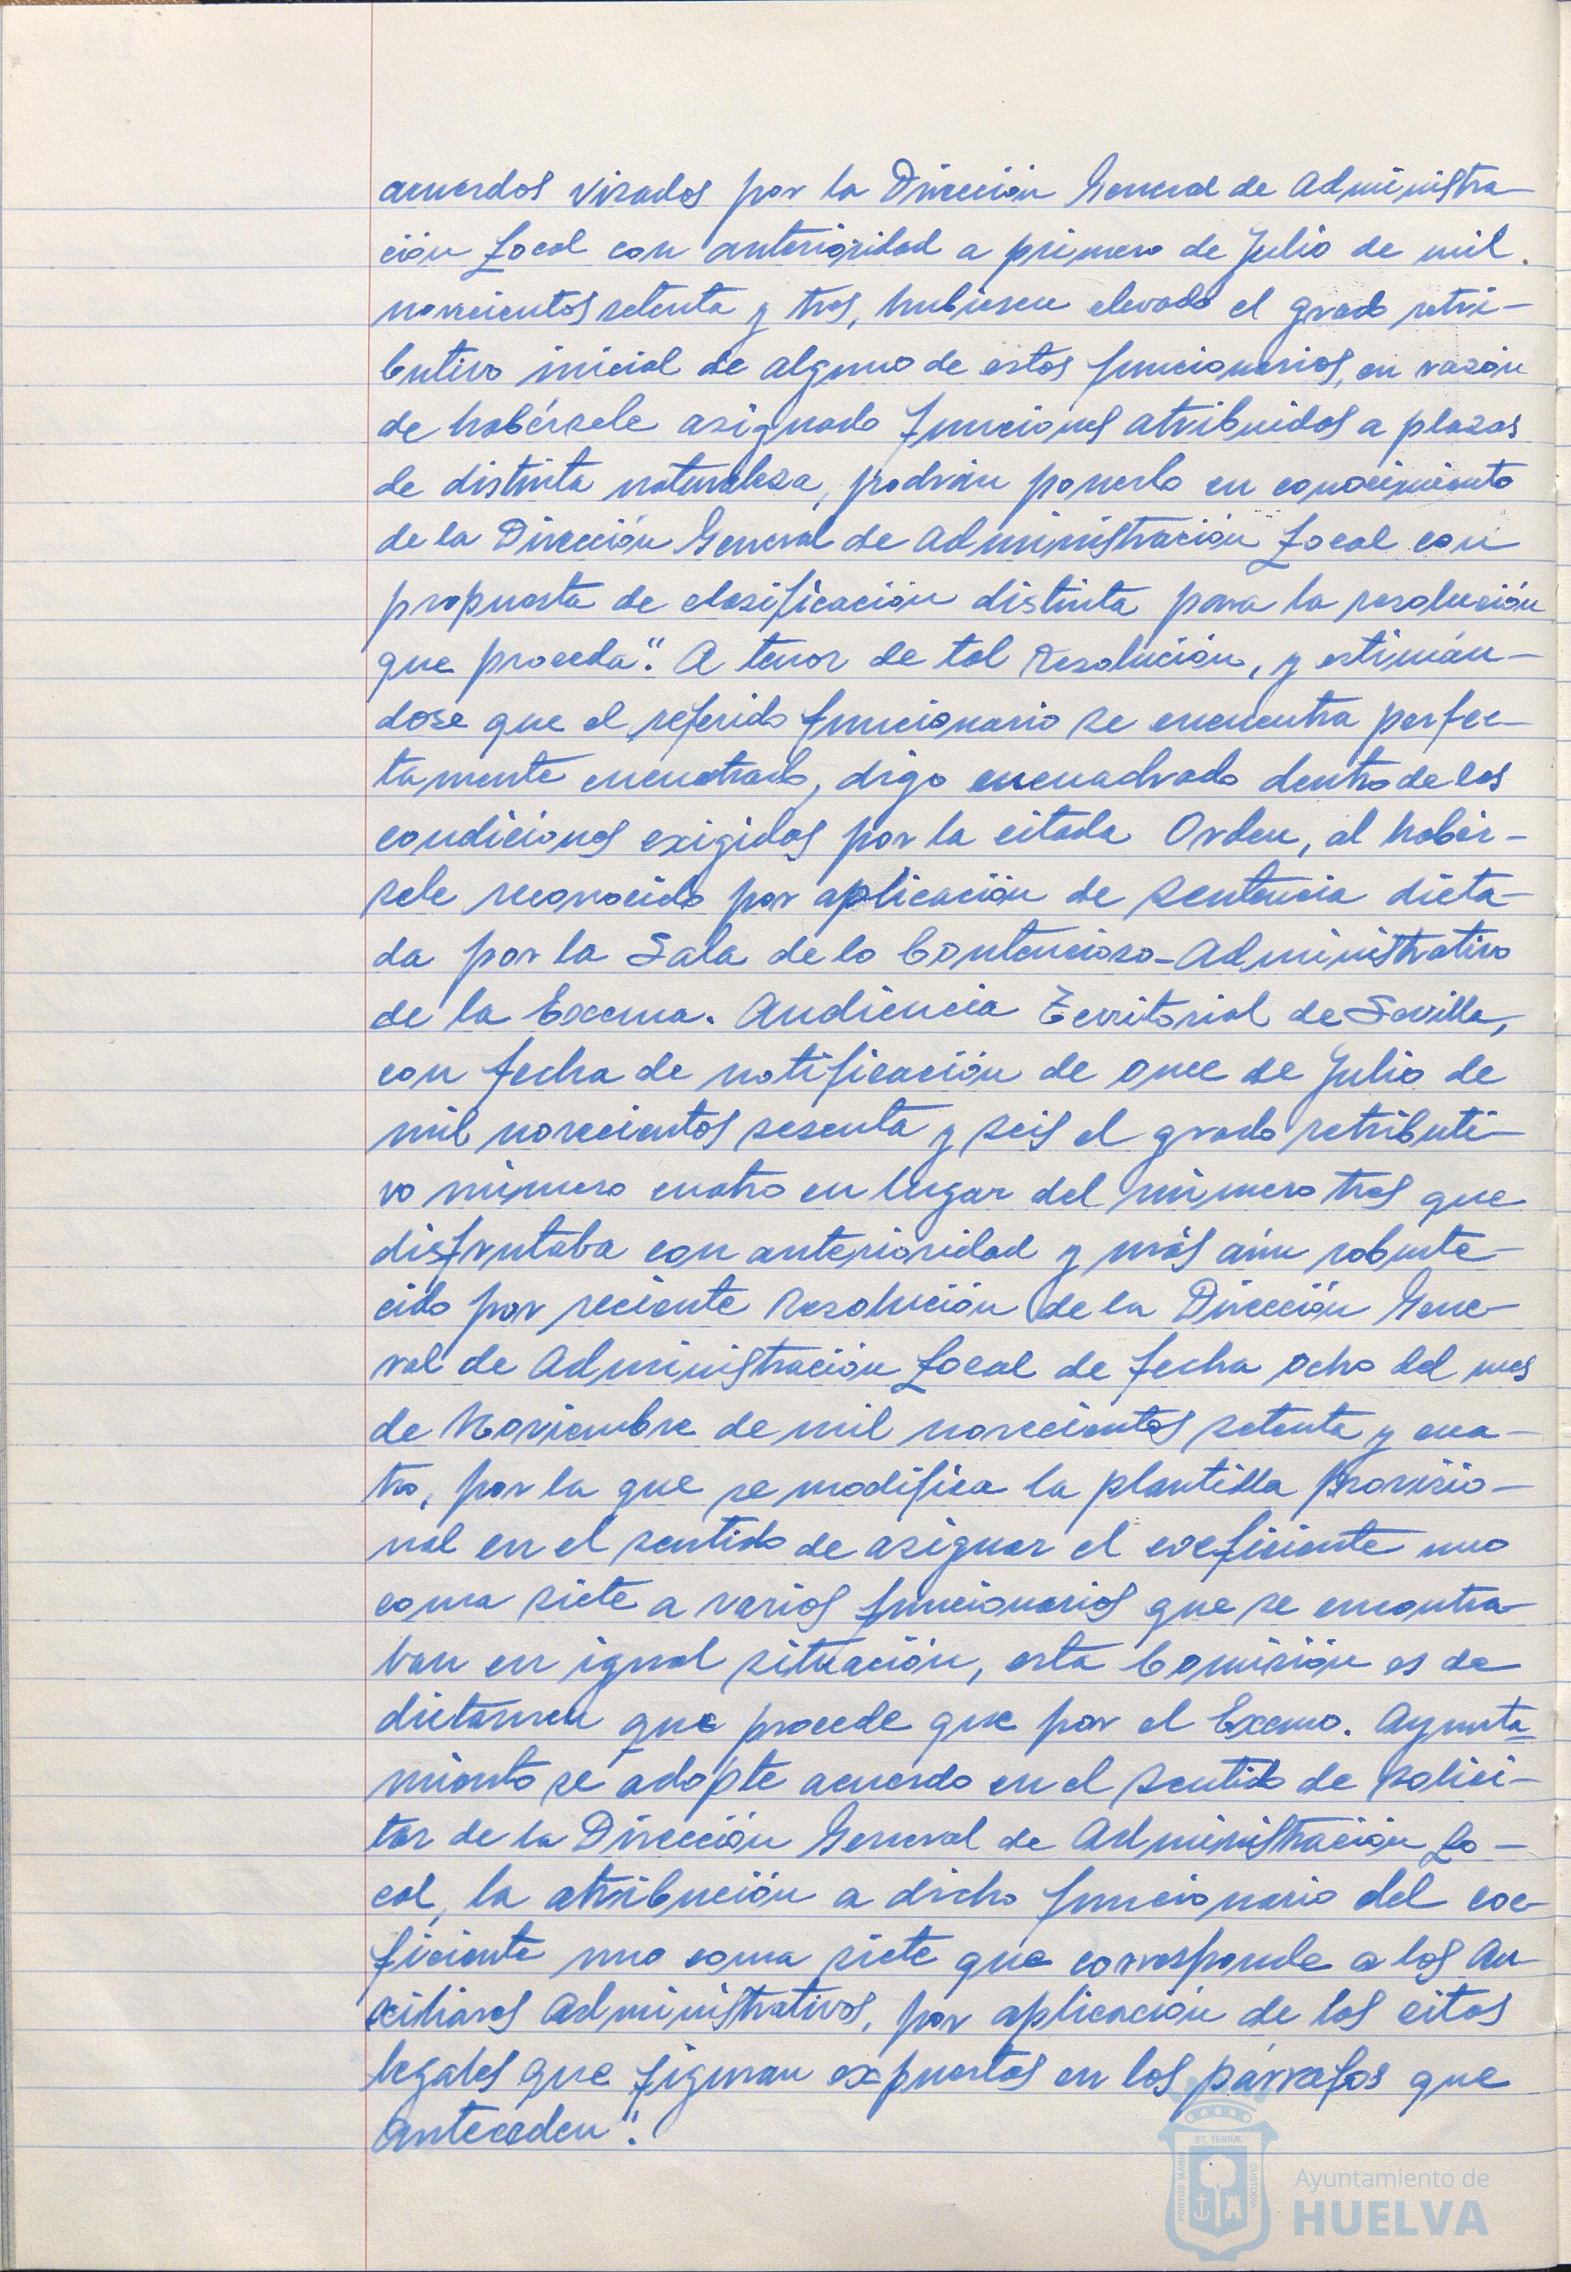 acuerdos visados por la Dirección General de Administra-
ción Local con anterioridad a primero de Julio de mil
novecientos setenta y tres, hubiesen elevado el grado retri-
butivo inicial de alguno de estos funcionarios, en razón
de habérsele asignado funciones atribuidas a plazas
de distinta naturaleza, podrán ponerlo en conocimiento
de la Dirección General de Administración Local con
propuesta de clasificación distinta para la resolución
que proceda". A tenor de tal Resolución, y estimán-
dose que el referido funcionario se encuentra perfec-
tamente encuatrado, digo encuadrado dentro de las
condiciones exigidas por la citada Orden, al habér-
sele reconocido por aplicación de sentencia dicta-
da por la Sala de lo Contencioso-Administrativo
de la Excma. Audiencia Territorial de Sevilla,
con fecha de notificación de once de Julio de
mil novecientos sesenta y seis el grado retributi-
vo número cuatro en lugar del número tres que
disfrutaba con anterioridad y más aún robuste-
cido por reciente Resolución de la Dirección Gene-
ral de Administración Local de fecha ocho del mes
de Noviembre de mil novecientos setenta y cua-
tro, por la que se modifica la plantilla provisio-
nal en el sentido de asignar el coeficiente uno
coma siete a varios funcionarios que se encontra-
ban en igual situación, esta Comisión es de
dictamen que procede que por el Excmo. Ayunta-
miento se adopte acuerdo en el sentido de solici-
tar de la Dirección General de Administración Lo-
cal, la atribución a dicho funcionario del coe-
ficiente uno coma siete que corresponde a los Au
xiliares Administrativos, por aplicación de las citas
legales que figuran expuestas en los párrafos que
anteceden".
ET TERRÆ
PORTUS MARIS
CUSTODIA
Ayuntamiento de
HUELVA